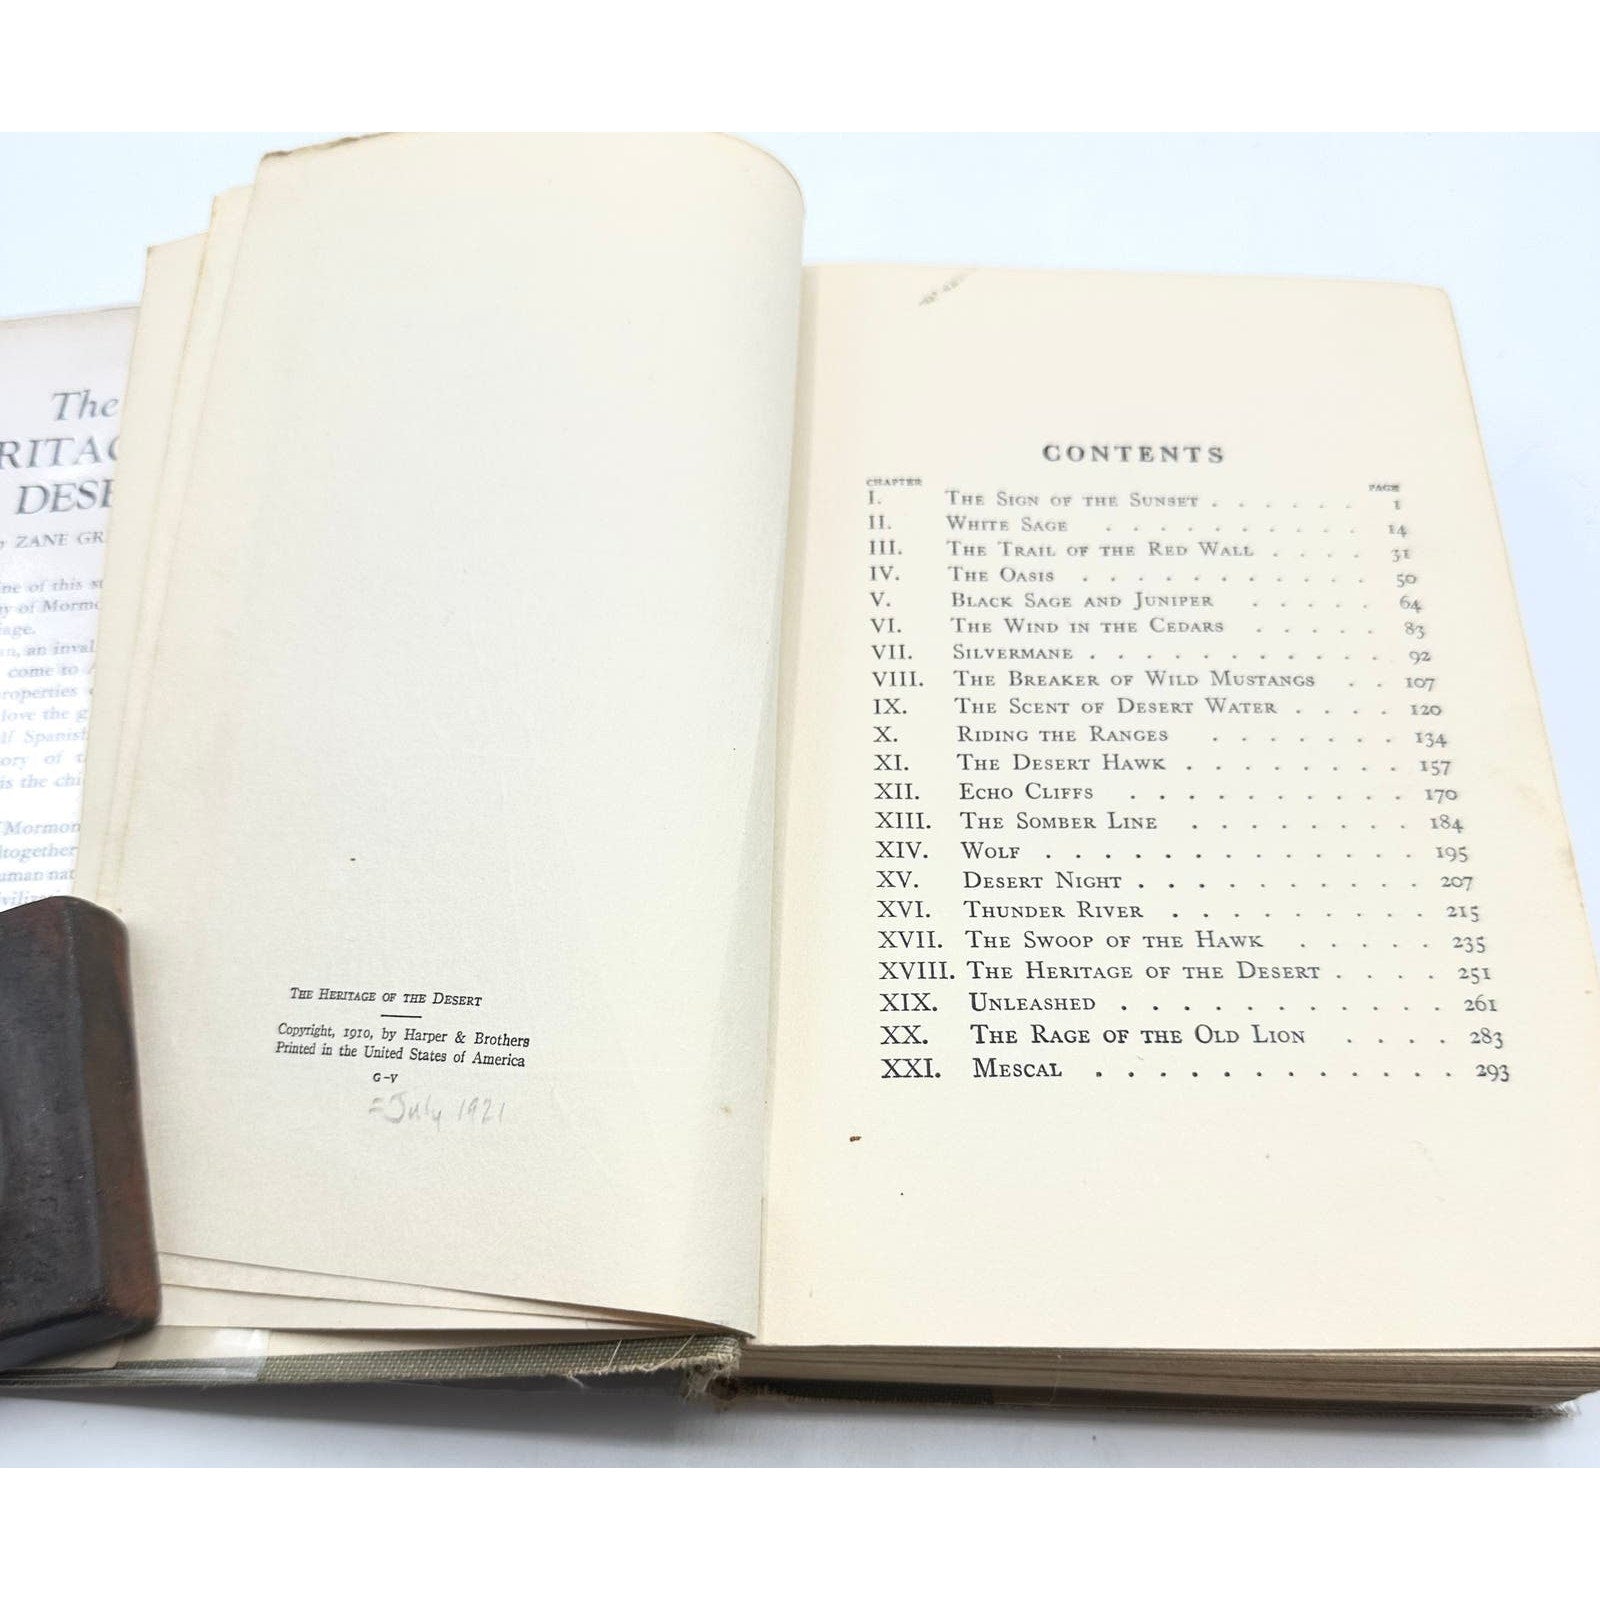 The
RITAG
DESE
y ZANE GR
ne of this s
y of Mormo
iage.
an, an inval
come to A
roperties
love the g
lf Spanish
ory of t
is the chi
Mormon
ltogether
uman nat
ivilizati
THE HERITAGE OF THE DESERT
Copyright, 1910, by Harper & Brothers
Printed in the United States of America
G-V
=July 1921
CONTENTS
CHAPTER PAGE
I. THE SIGN OF THE SUNSET . . . . . . 1
II. WHITE SAGE . . . . . . . . . . 14
III. THE TRAIL OF THE RED WALL . . . . 31
IV. THE OASIS . . . . . . . . . . . 50
V. BLACK SAGE AND JUNIPER . . . . . 64
VI. THE WIND IN THE CEDARS . . . . . 83
VII. SILVERMANE . . . . . . . . . . . 92
VIII. THE BREAKER OF WILD MUSTANGS . . 107
IX. THE SCENT OF DESERT WATER . . . . 120
X. RIDING THE RANGES . . . . . . . 134
XI. THE DESERT HAWK . . . . . . . . 157
XII. ECHO CLIFFS . . . . . . . . . . 170
XIII. THE SOMBER LINE . . . . . . . . 184
XIV. WOLF . . . . . . . . . . . . . 195
XV. DESERT NIGHT . . . . . . . . . . 207
XVI. THUNDER RIVER . . . . . . . . . 215
XVII. THE SWOOP OF THE HAWK . . . . . 235
XVIII. THE HERITAGE OF THE DESERT . . . . 251
XIX. UNLEASHED . . . . . . . . . . . 261
XX. THE RAGE OF THE OLD LION . . . . 283
XXI. MESCAL . . . . . . . . . . . . 293